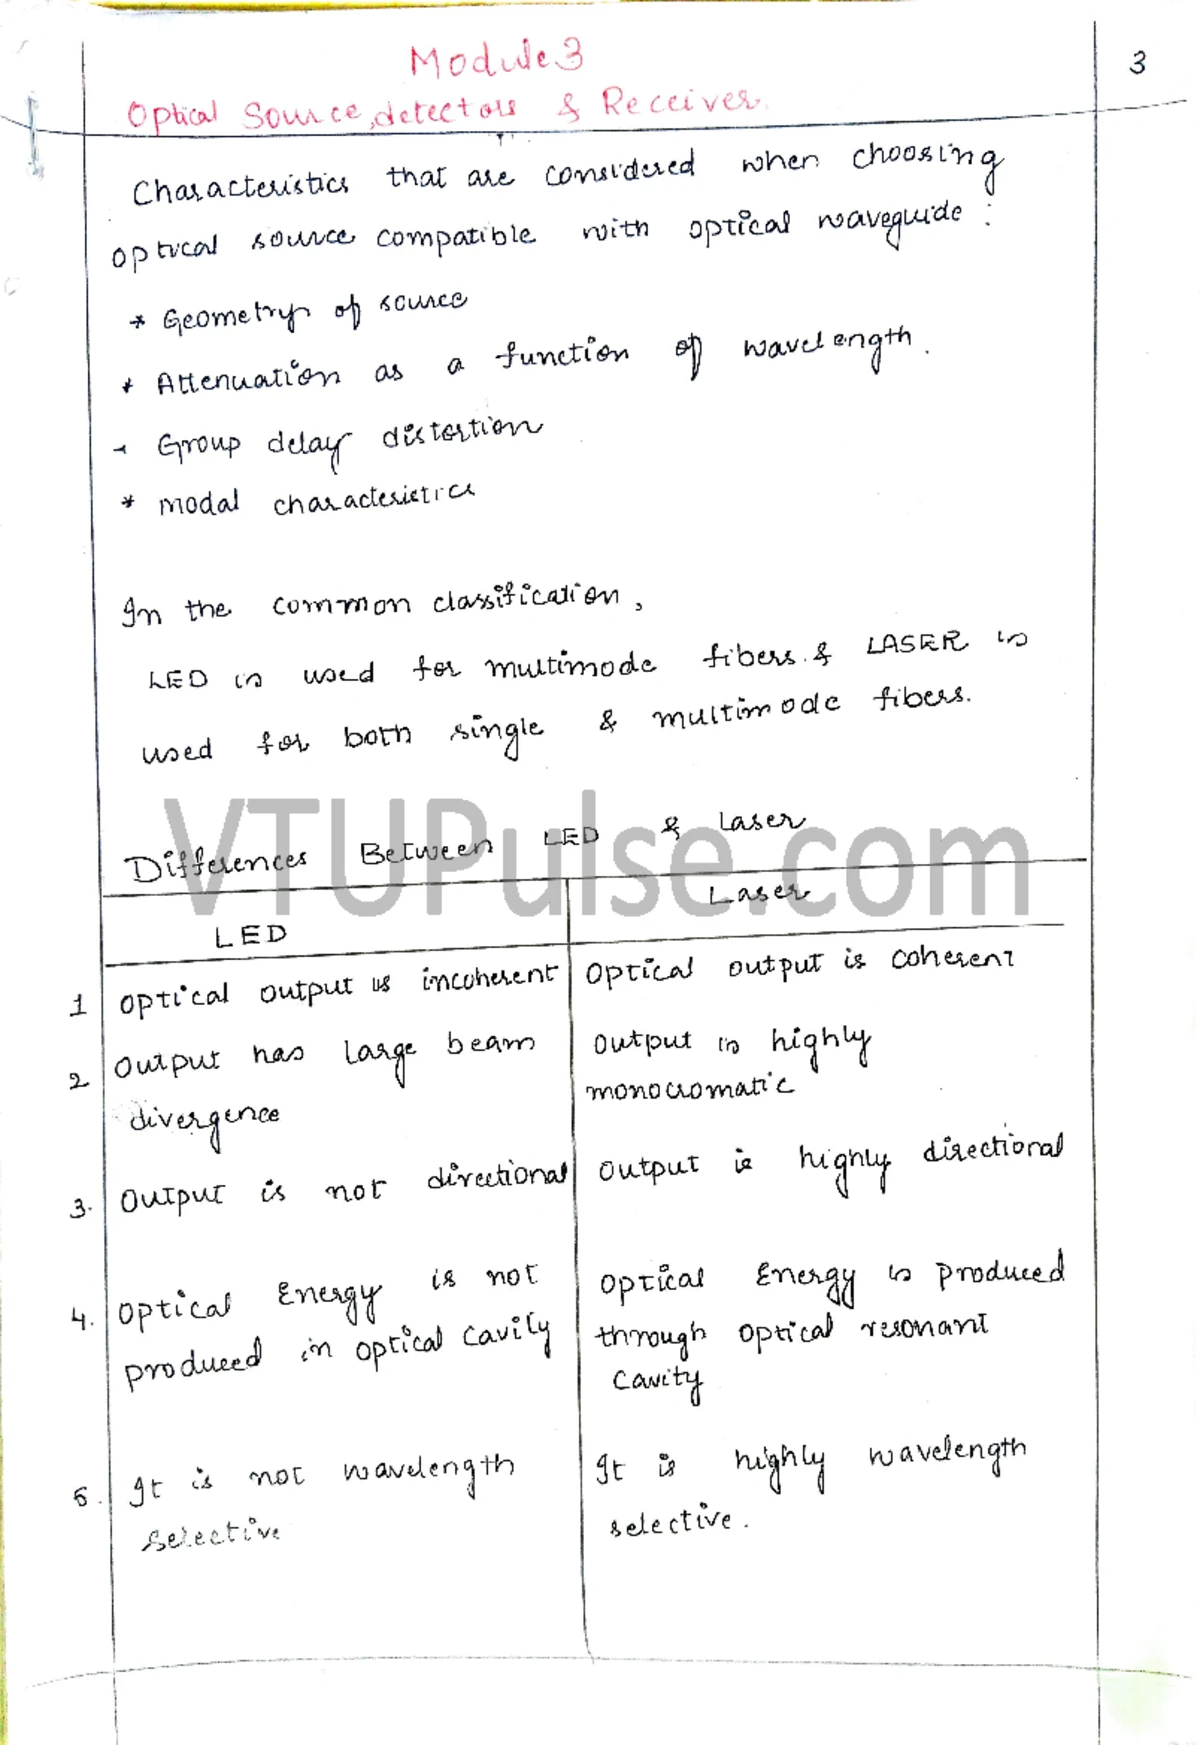 Module 3
3
Optical Source, detectors & Receiver.
Characteristics that are considered when choosing
optical source compatible with optical waveguide :
* Geometry of source
* Attenuation as a function of wavelength.
* Group delay distortion
* Modal characteristics
In the common classification,
LED is used for multimode fibers & LASER is
used for both single & multimode fibers.
VTUPulse.com
Differences Between LED & Laser
LED
Laser
1 Optical output is incoherent
Optical output is coherent
2 Output has large beam
divergence
Output is highly
monocromatic
3. Output is not directional
Output is highly directional
4. Optical Energy is not
produced in optical cavity
Optical Energy is produced
through optical resonant
cavity
5. It is not wavelength
selective
It is highly wavelength
selective.